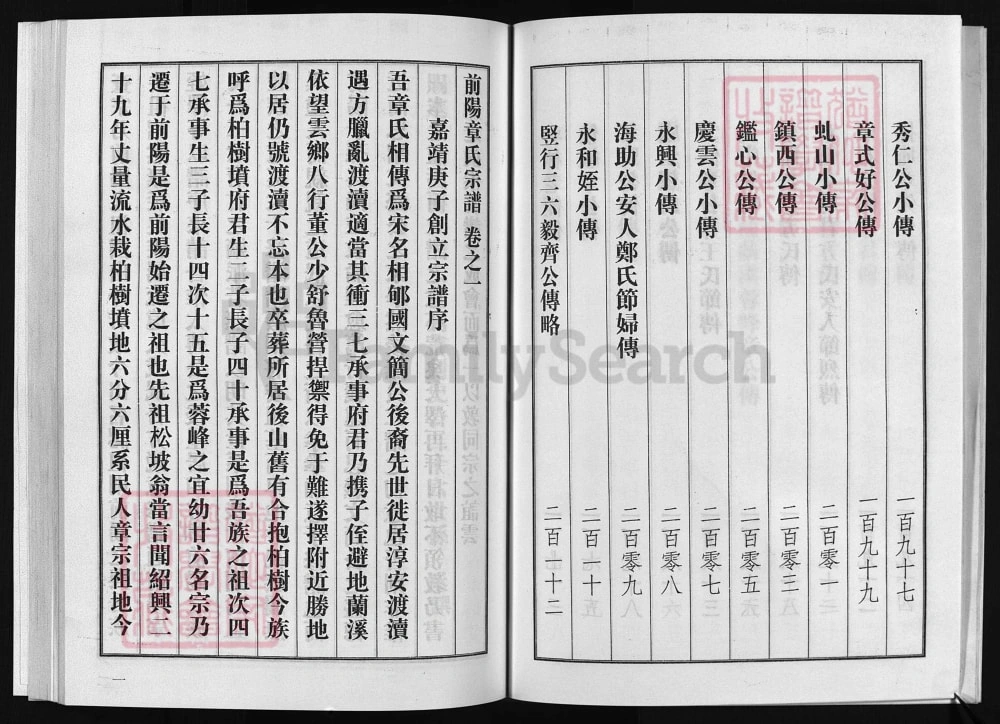 秀仁公小傳 一百九十七
章式好公傳 一百九十九
虬山小傳 二百零
鎮西公傳 二百零三
鑑心公傳 二百零五
慶雲公小傳 二百零七
永興小傳 二百零八
海助公安人鄭氏節婦傳 二百零九
永和姪小傳 二百一十
竪行三六毅齊公傳略 二百一十二
前陽章氏宗譜 卷之一
嘉靖庚子創立宗譜序
吾章氏相傳爲宋名相郇國文簡公後裔先世徙居淳安渡瀆
遇方臘亂渡瀆適當其衝三七承事府君乃携子侄避地蘭溪
依望雲鄉八行董公少舒魯營捍禦得免于難遂擇附近勝地
以居仍號渡瀆不忘本也卒葬所居後山舊有合抱柏樹今族
呼爲柏樹墳府君生二子長子四十承事是爲吾族之祖次四
七承事生三子長十四次十五是爲蓉峰之宜幼廿六名宗乃
遷于前陽是爲前陽始遷之祖也先祖松坡翁當言聞紹興二
十九年丈量流水栽柏樹墳地六分六厘系民人章宗祖地今
一
FamilySearch